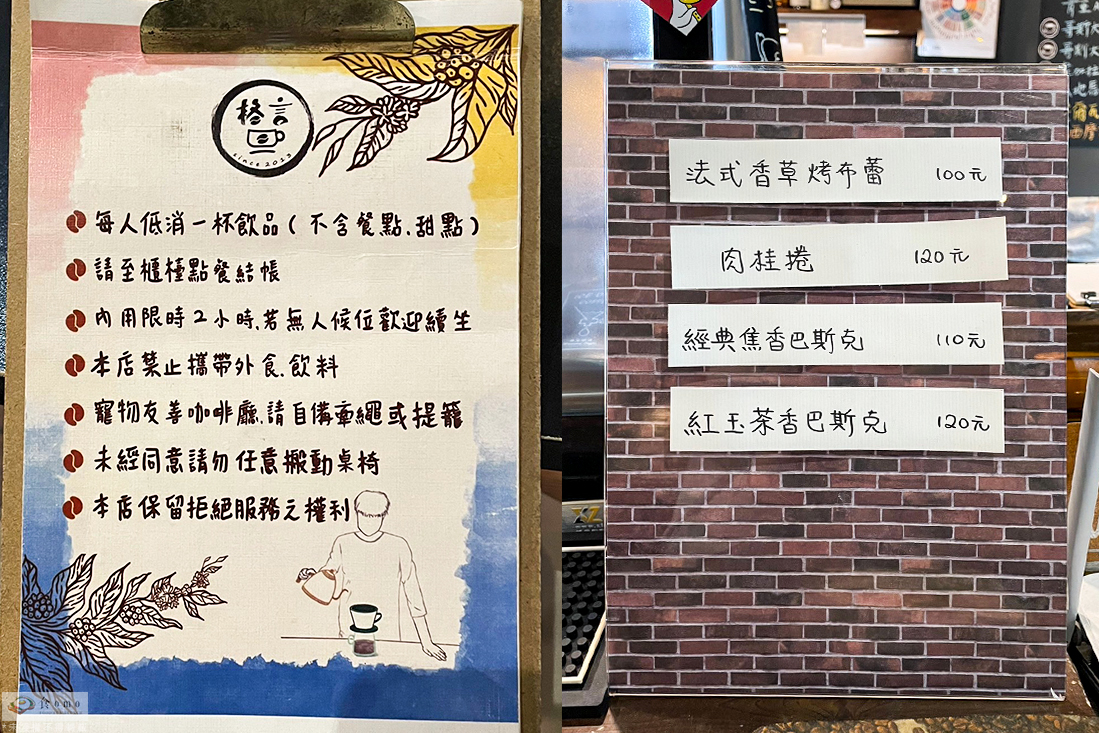 格言
since 2013
每人低消一杯飲品(不含餐點.甜點)
請至櫃檯點餐結帳
內用限時2小時.若無人候位歡迎續坐
本店禁止攜帶外食.飲料
寵物友善咖啡廳.請自備牽繩或提籠
未經同意請勿任意搬動桌椅
本店保留拒絕服務之權利
食momo
法式香草烤布蕾 100元
肉桂捲 120元
經典焦香巴斯克 110元
紅玉茶香巴斯克 120元